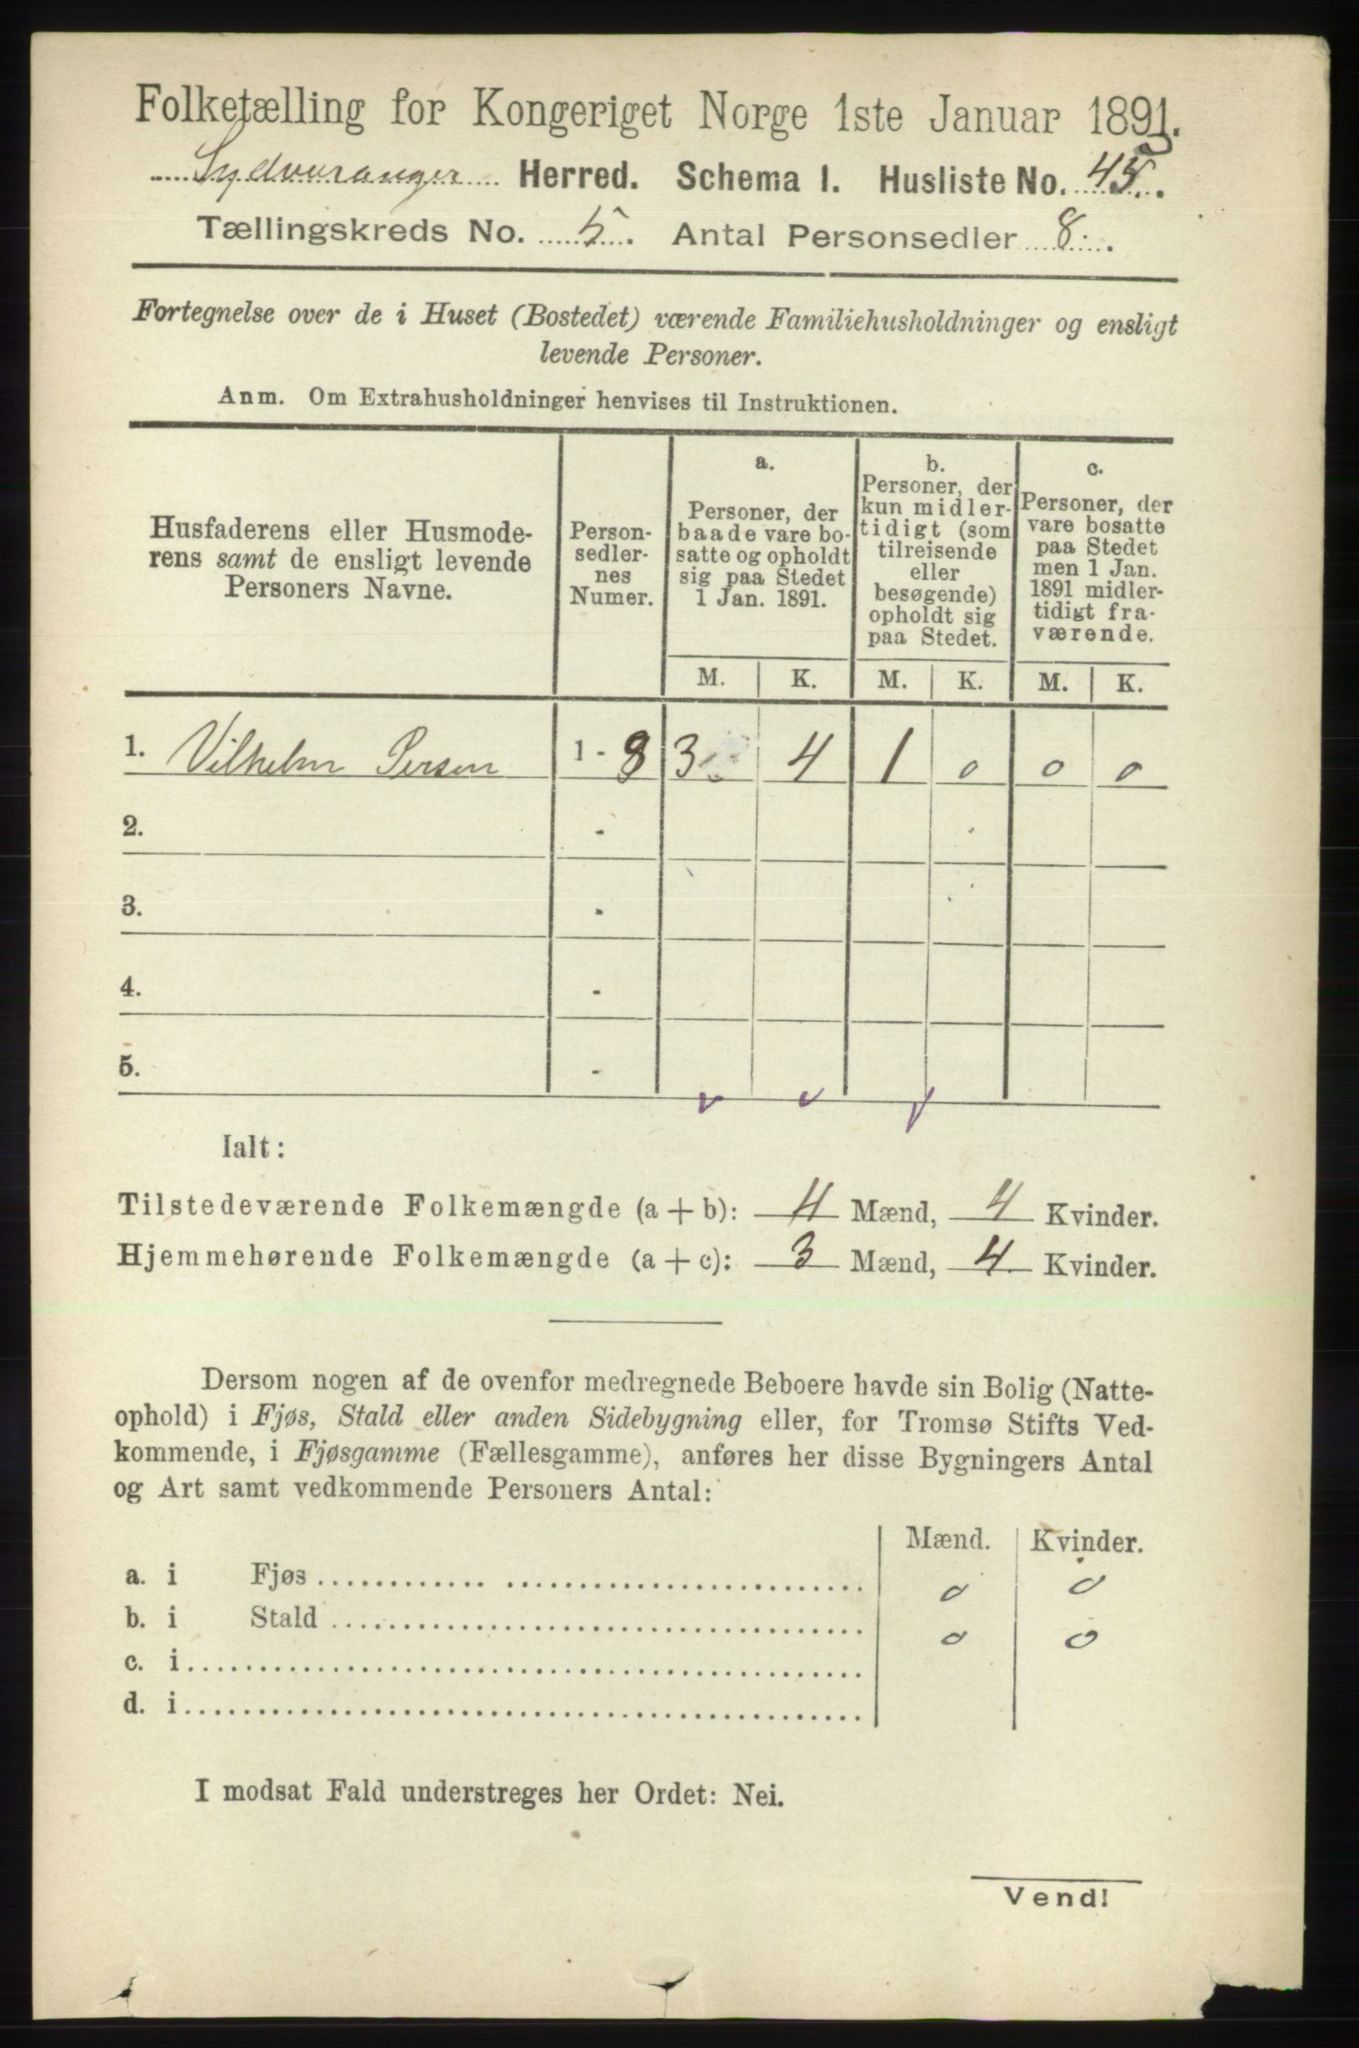 Folketælling for Kongeriget Norge 1ste Januar 1891.
Sydvaranger Herred. Schema 1. Husliste No. 45.
Tællingskreds No. 5. Antal Personsedler 8.
Fortegnelse over de i Huset (Bostedet) værende Familiehusholdninger og ensligt
levende Personer.
Anm. Om Extrahusholdninger henvises til Instruktionen.
Husfaderens eller Husmode-
rens samt de ensligt levende
Personers Navne.
Person-
sedler-
nes
Numer.
a.
Personer, der
baade vare bo-
satte og opholdt
sig paa Stedet
1 Jan. 1891.
b.
Personer, der
kun midler-
tidigt (som
tilreisende
eller
besøgende)
opholdt sig
paa Stedet.
c.
Personer, der
vare bosatte
paa Stedet
men 1 Jan.
1891 midler-
tidigt fra-
værende.
M. K. M. K. M. K.
1. Vilhelm Persen 1 - 8 3 4 1 0 0 0
2. -
3. -
4. -
5. -
Ialt:
Tilstedeværende Folkemængde (a + b): 4 Mænd, 4 Kvinder.
Hjemmehørende Folkemængde (a + c): 3 Mænd, 4 Kvinder.
Dersom nogen af de ovenfor medregnede Beboere havde sin Bolig (Natte-
ophold) i Fjøs, Stald eller anden Sidebygning eller, for Tromsø Stifts Ved-
kommende, i Fjøsgamme (Fællesgamme), anføres her disse Bygningers Antal
og Art samt vedkommende Personers Antal:
Mænd. Kvinder.
a. i Fjøs 0 0
b. i Stald 0 0
c. i
d. i
I modsat Fald understreges her Ordet: Nei.
Vend!